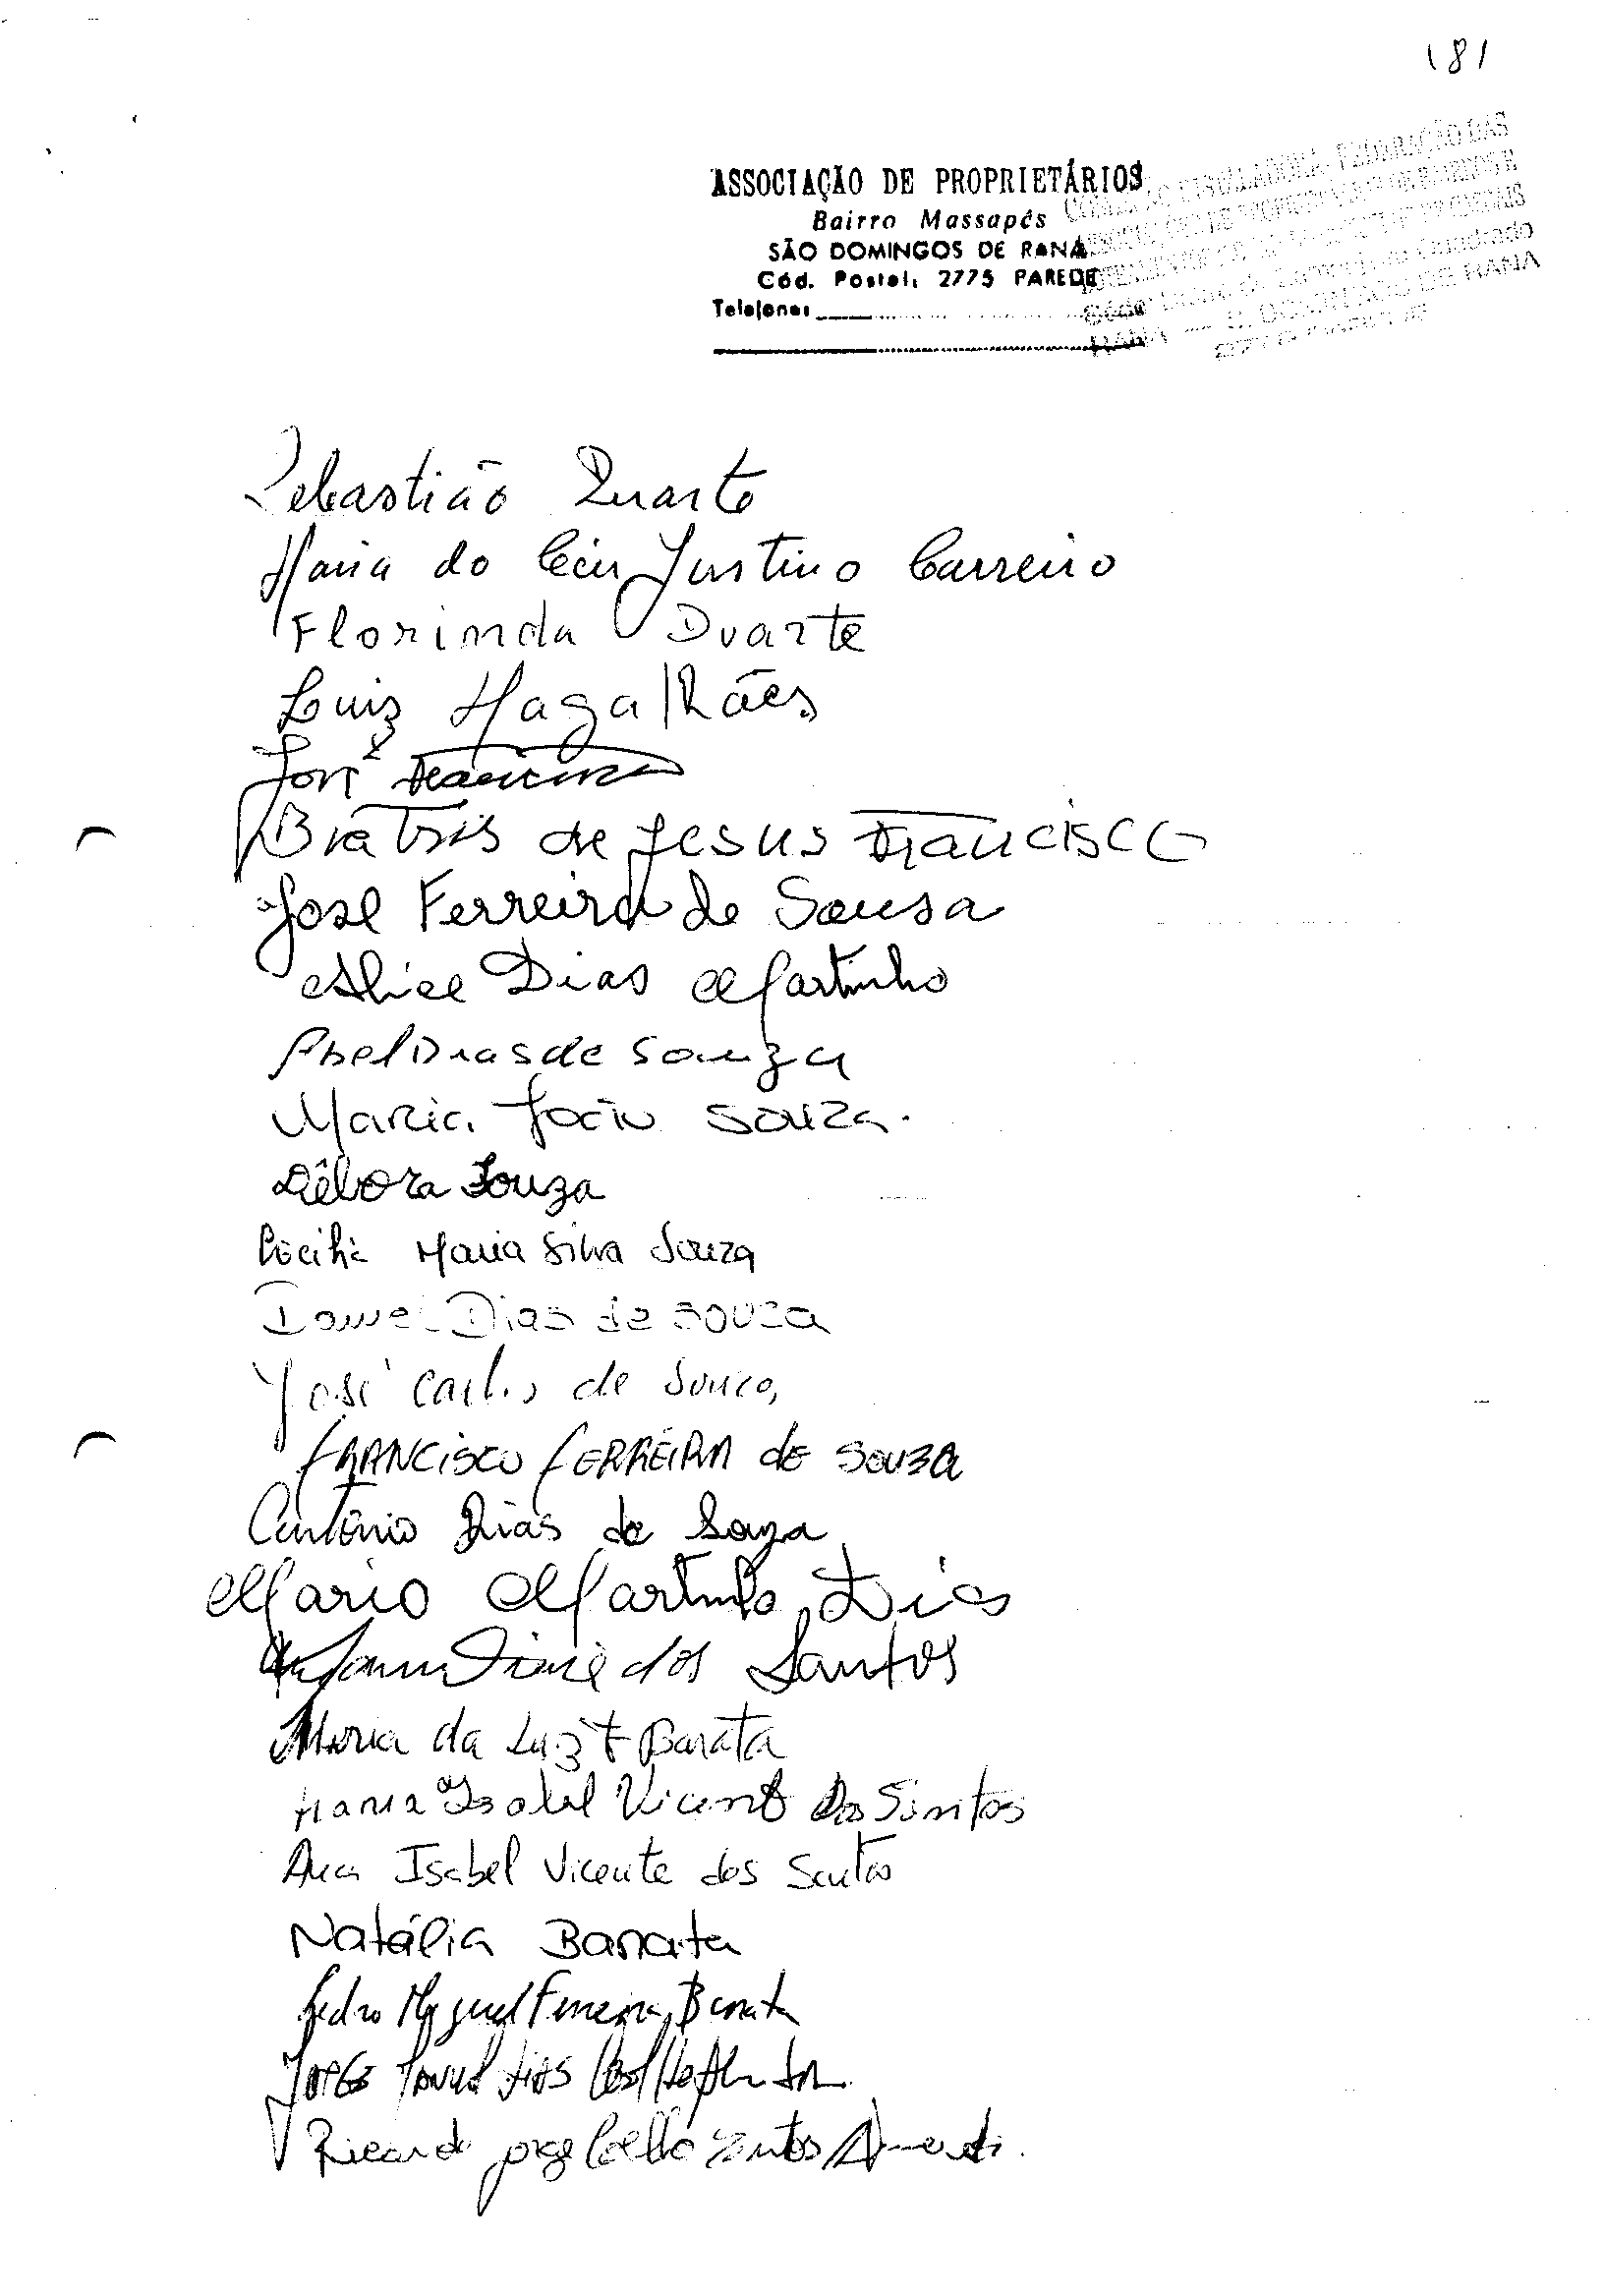 181
ASSOCIAÇÃO DE PROPRIETÁRIOS
Bairro Massapés
SÃO DOMINGOS DE RANA
Cód. Postal, 2775 PAREDE
Telefone:
FEDERAÇÃO DAS
RANA — S. DOMINGOS DE RANA
Sebastião Duarte
Maria do Céu Justino Carreiro
Florinda Duarte
Luiz Magalhães
José Francisco
Biatris de Jesus Francisco
José Ferreira de Sousa
Alice Dias Martinho
Abel Dias de Souza
Maria João Souza.
Débora Souza
Cecília Maria Silva Souza
Daniel Dias de Souza
José Carlos de Souza,
FRANCISCO FERREIRA de SOUZA
António Dias de Souza
Mario Martinho Dias
dos Santos
Maria da Luz F Barata
Maria Isabel Vicente dos Santos
Ana Isabel Vicente dos Santos
Natália Barata
Pedro Miguel Ferreira Barata
Jorge Manuel Dias
Ricardo Jorge Coelho Santos